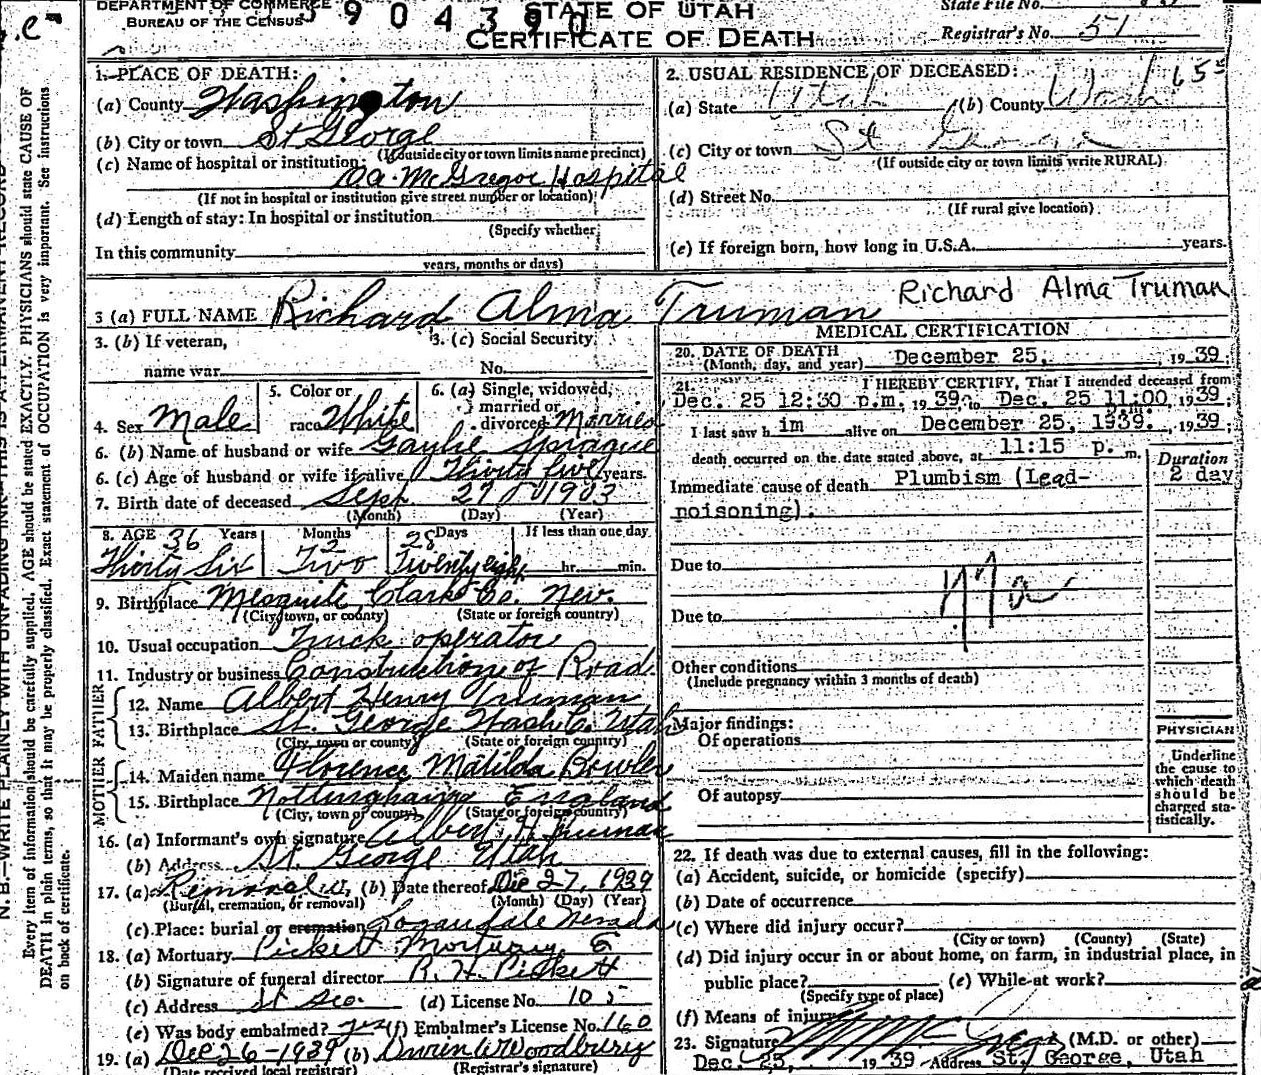 DEPARTMENT OF COMMERCE
BUREAU OF THE CENSUS
3 9 0 4 3 9 0
STATE OF UTAH
CERTIFICATE OF DEATH
State File No.
Registrar's No. 51
1. PLACE OF DEATH:
(a) County Washington
(b) City or town St George
(If outside city or town limits name precinct)
(c) Name of hospital or institution:
D.A. McGregor Hospital
(If not in hospital or institution give street number or location)
(d) Length of stay: In hospital or institution
(Specify whether
In this community
years, months or days)
2. USUAL RESIDENCE OF DECEASED: 655
(a) State Utah (b) County Wash
(c) City or town St George
(If outside city or town limits write RURAL)
(d) Street No.
(If rural give location)
(e) If foreign born, how long in U.S.A. years.
3 (a) FULL NAME Richard Alma Truman
Richard Alma Truman
3. (b) If veteran,
name war
3. (c) Social Security
No.
4. Sex Male
5. Color or
race White
6. (a) Single, widowed,
married or
divorced Married
6. (b) Name of husband or wife Gaylie Sprague
6. (c) Age of husband or wife if alive Thirty five years.
7. Birth date of deceased Sept 27 1903
(Month) (Day) (Year)
8. AGE 36 Years Months 2 28 Days If less than one day
Thirty Six Two Twenty eight hr. min.
9. Birthplace Mesquite Clark Co. Nev.
(City, town, or county) (State or foreign country)
10. Usual occupation Truck operator
11. Industry or business Construction of Road
FATHER
12. Name Albert Henry Truman
13. Birthplace St. George Wash Co. Utah
(City, town or county) (State or foreign country)
MOTHER
14. Maiden name Florence Matilda Bowler
15. Birthplace Nottinghame England
(City, town or county) (State or foreign country)
16. (a) Informant's own signature Albert H Truman
(b) Address St. George Utah
17. (a) Removal (b) Date thereof Dec 27, 1939
(Burial, cremation, or removal) (Month) (Day) (Year)
(c) Place: burial or cremation Logandale Nevada
18. (a) Mortuary Pickett Mortuary
(b) Signature of funeral director R. H. Pickett
(c) Address St Geo. (d) License No. 105
(e) Was body embalmed? yes (f) Embalmer's License No. 160
19. (a) Dec 26-1939 (b) Woodbury
(Date received local registrar) (Registrar's signature)
MEDICAL CERTIFICATION
20. DATE OF DEATH
(Month, day, and year) December 25, , 1939;
21. I HEREBY CERTIFY, That I attended deceased from
Dec. 25 12:30 p.m. 1939, to Dec. 25 11:00 , 1939;
p.m.
I last saw h im alive on December 25, 1939. , 1939;
death occurred on the date stated above, at 11:15 p. m.
Duration
Immediate cause of death Plumbism (Lead- 2 day
poisoning).
Due to
Due to
Other conditions
(Include pregnancy within 3 months of death)
Major findings:
Of operations
Of autopsy
PHYSICIAN
Underline
the cause to
which death
should be
charged sta-
tistically.
22. If death was due to external causes, fill in the following:
(a) Accident, suicide, or homicide (specify)
(b) Date of occurrence
(c) Where did injury occur?
(City or town) (County) (State)
(d) Did injury occur in or about home, on farm, in industrial place, in
public place? (e) While at work?
(Specify type of place)
(f) Means of injury
23. Signature (M.D. or other)
Dec. 25, 1939 Address St. George, Utah
N. B.—WRITE PLAINLY WITH UNFADING INK—THIS IS A PERMANENT RECORD
Every item of information should be carefully supplied. AGE should be stated EXACTLY. PHYSICIANS should state CAUSE OF
DEATH in plain terms, so that it may be properly classified. Exact statement of OCCUPATION is very important. See instructions
on back of certificate.